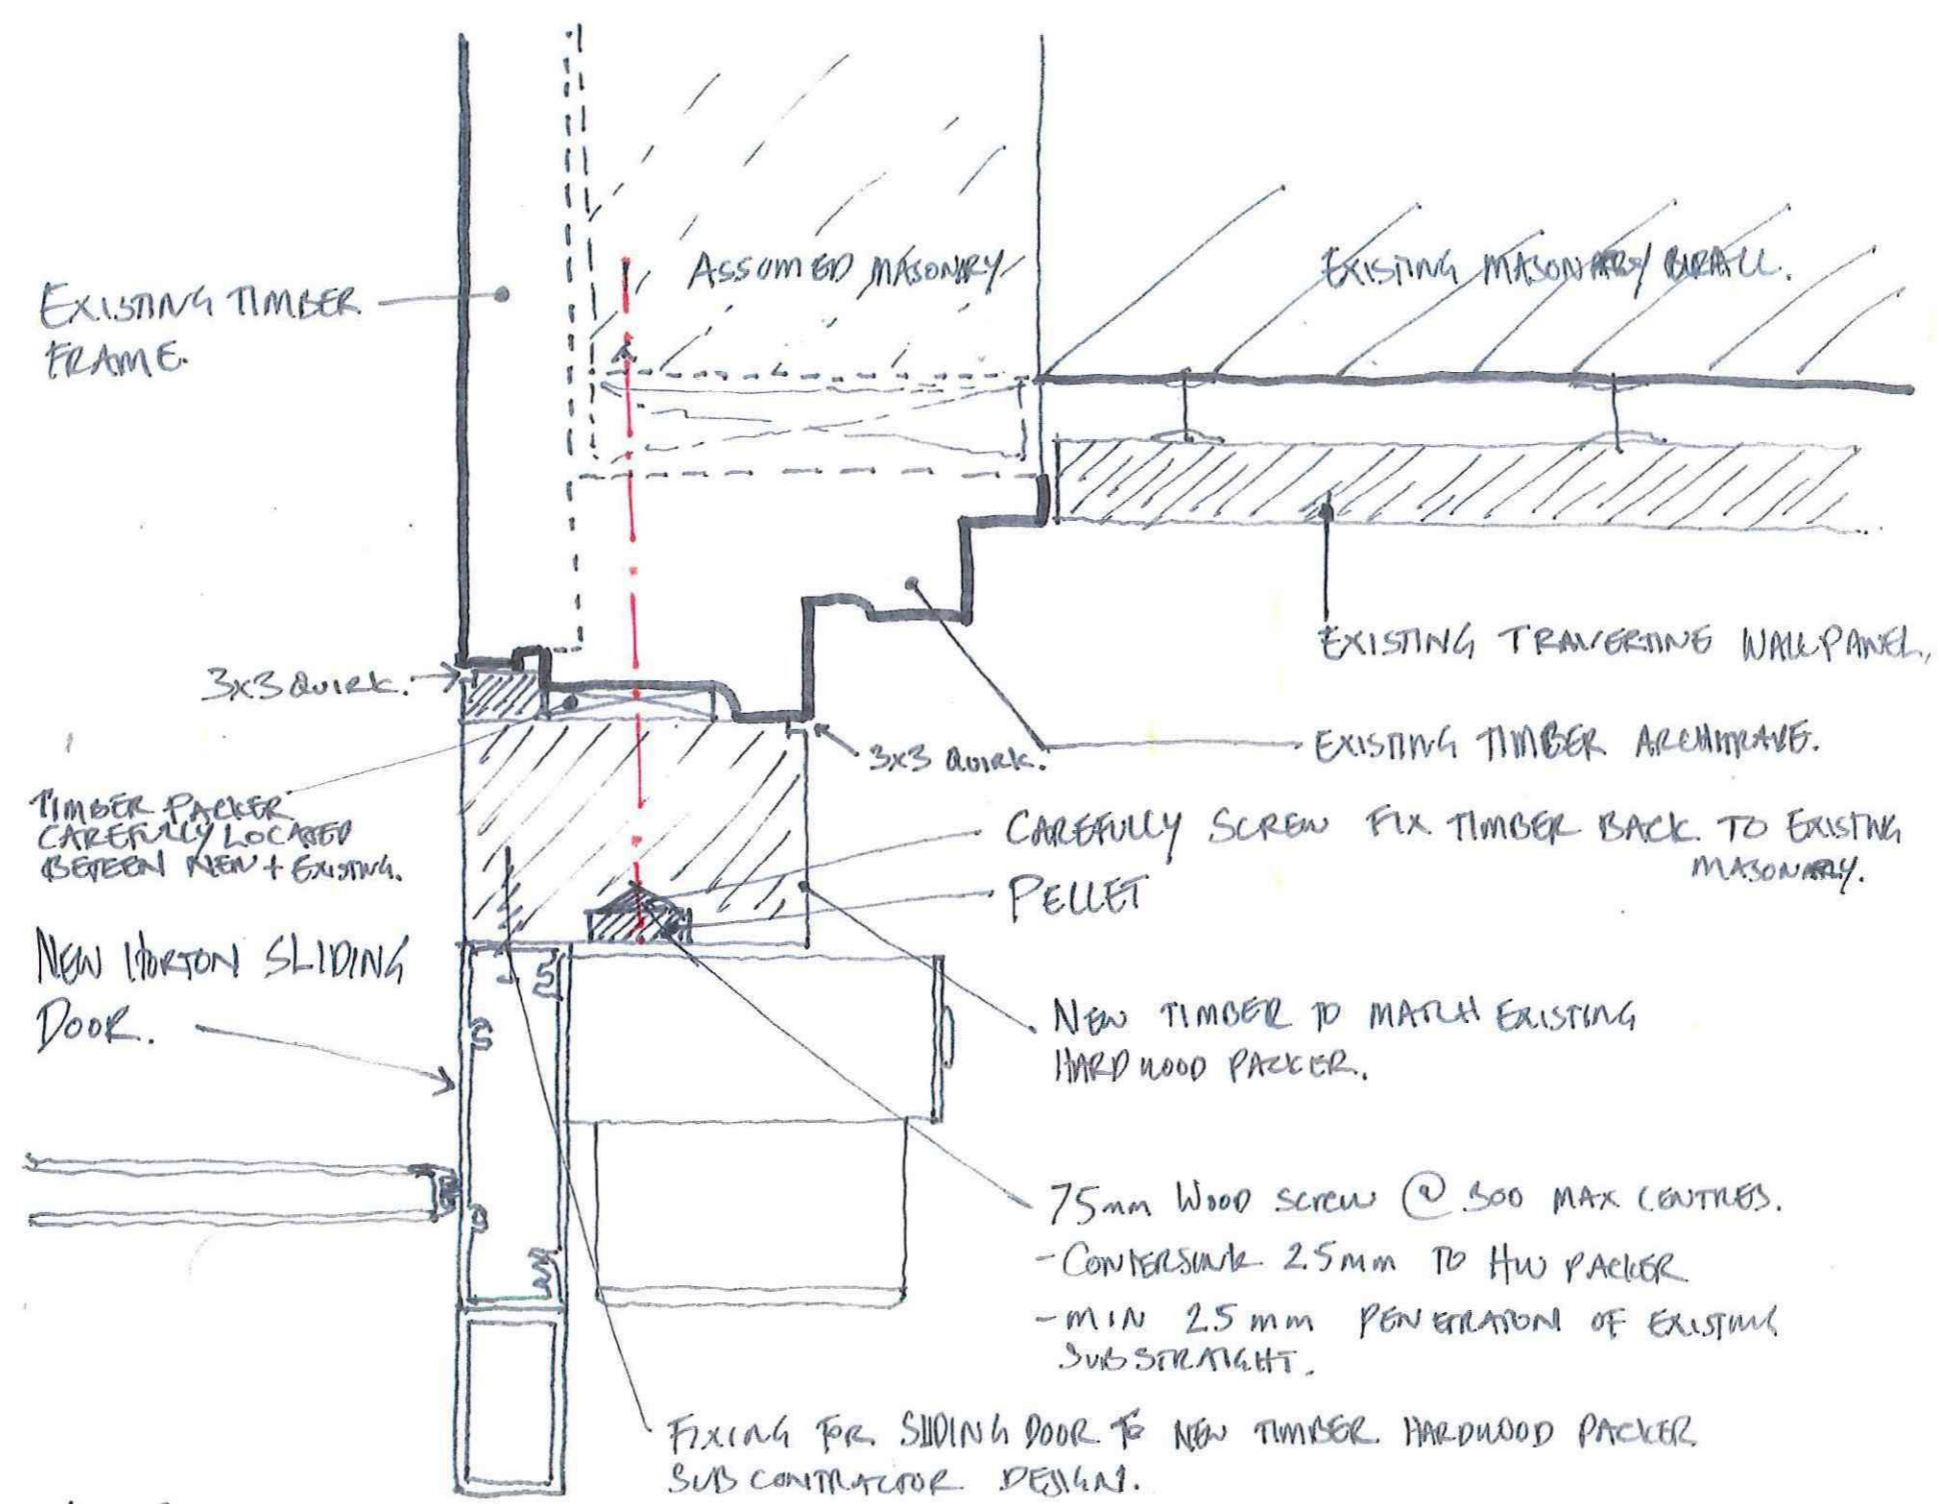 ASSUMED MASONRY
EXISTING MASONARY
EXISTING TIMBER
FRAME.
EXISTING TRAVERTINE WALL PANEL,
3x3 QUIRK.
3x3 QUIRK.
EXISTING TIMBER ARCHITRAVE.
TIMBER PACKER
CAREFULLY LOCATED
BETEEN NEW + EXISTING.
CAREFULLY SCREW FIX TIMBER BACK TO EXISTING
MASONARY.
PELLET
NEW HORTON SLIDING
DOOR.
NEW TIMBER TO MATCH EXISTING
HARDWOOD PACKER.
75mm WOOD SCREW @ 300 MAX CENTRES.
- CONTERSUNK 25mm TO HW PACKER
- MIN 25mm PENETRATION OF EXISTING
SUBSTRAIGHT.
FIXING FOR SLIDING DOOR TO NEW TIMBER HARDWOOD PACKER
SUB CONTRACTOR DESIGN.